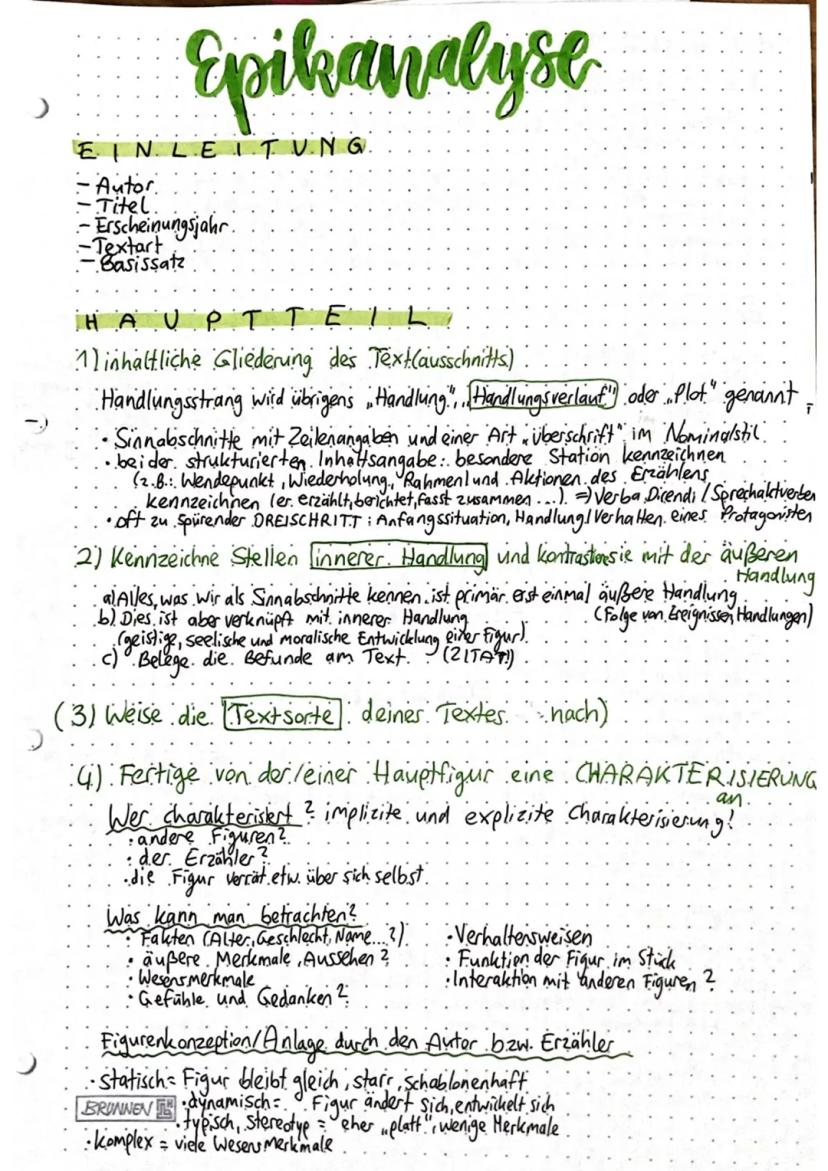 Epikanalyse
EINLEITUNG
- Autor
- Titel
- Erscheinungsjahr
- Textart
- Basissatz
HAUPTTEIL
1) inhaltliche Gliederung des Text(ausschnitts)
Handlungsstrang wird übrigens „Handlung", „Handlungsverlauf" oder „Plot" genannt
• Sinnabschnitte mit Zeilenangaben und einer Art „Überschrift" im Nominalstil
• bei der strukturierten Inhaltsangabe: besondere Station kennzeichnen
(z.B.: Wendepunkt, Wiederholung, Rahmen) und Aktionen des Erzählens
kennzeichnen (er erzählt, berichtet, fasst zusammen ...) => Verba Dicendi / Sprechaktverben
• oft zu spürender DREISCHRITT: Anfangssituation, Handlung/Verhalten eines Protagonisten
2) Kennzeichne Stellen innerer Handlung und kontrastiere sie mit der äußeren
Handlung
a) Alles, was wir als Sinnabschnitte kennen ist primär erst einmal äußere Handlung
(Folge von Ereignissen, Handlungen)
b) Dies ist aber verknüpft mit innerer Handlung
(geistige, seelische und moralische Entwicklung einer Figur)
c) Belege die Befunde am Text (ZITAT!)
(3) Weise die Textsorte deines Textes nach)
4) Fertige von der/einer Hauptfigur eine CHARAKTERISIERUNG
an
Wer charakterisiert? implizite und explizite Charakterisierung!
• andere Figuren?
• der Erzähler?
• die Figur verrät etw. über sich selbst
Was kann man betrachten?
• Fakten (Alter, Geschlecht, Name...?)
• äußere Merkmale, Aussehen?
• Wesensmerkmale
• Gefühle und Gedanken?
• Verhaltensweisen
• Funktion der Figur im Stück
• Interaktion mit anderen Figuren?
Figurenkonzeption/Anlage durch den Autor bzw. Erzähler
• statisch = Figur bleibt gleich, starr, schablonenhaft
BRUNNEN
• dynamisch = Figur ändert sich, entwickelt sich
• typisch, stereotyp = eher „platt", wenige Merkmale
• komplex = viele Wesensmerkmale